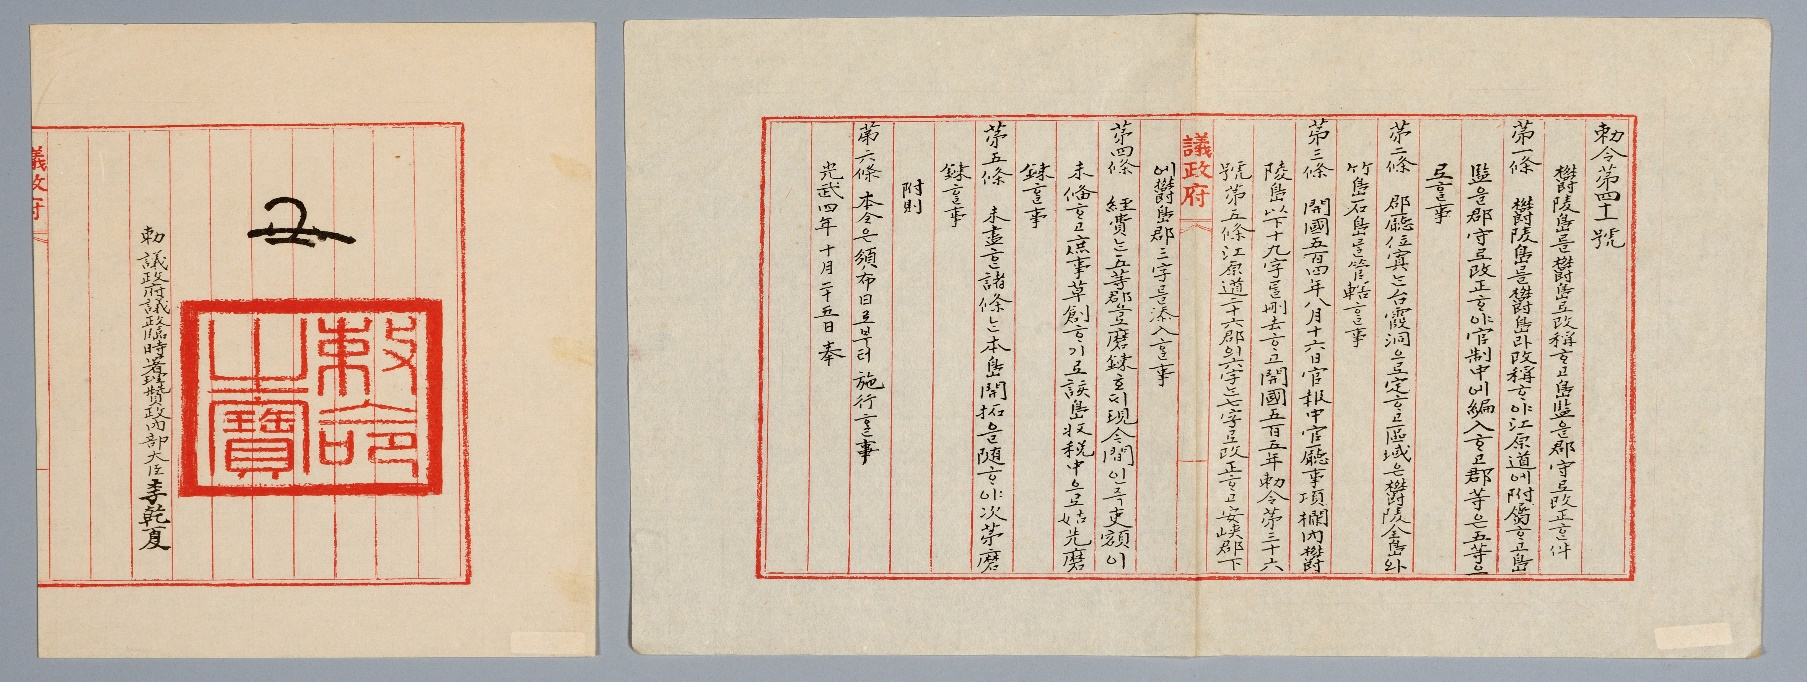 勅令第四十一號
欝陵島를欝島로改稱ᄒᆞ고島監을郡守로改正ᄒᆞᆫ件
第一條 欝陵島를欝島라改稱ᄒᆞ야江原道에附屬ᄒᆞ고島
監을郡守로改正ᄒᆞ야官制中에編入ᄒᆞ고郡等은五等으
로ᄒᆞᆯ事
第二條 郡廳位寘는台霞洞으로定ᄒᆞ고區域은欝陵全島와
竹島石島를管轄ᄒᆞᆯ事
第三條 開國五百四年八月十六日官報中官廳事項欄內欝
陵島以下十九字를刪去ᄒᆞ고開國五百五年勅令第三十六
號第五條江原道二十六郡의六字는七字로改正ᄒᆞ고安峽郡下
에欝島郡三字를添入ᄒᆞᆯ事
第四條 經費는五等郡으로磨鍊호ᄃᆡ現今間인즉吏額이
未備ᄒᆞ고庶事草創ᄒᆞ기로該島收稅中으로姑先磨
鍊ᄒᆞᆯ事
第五條 未盡ᄒᆞᆫ諸條는本島開拓을隨ᄒᆞ야次第磨
鍊ᄒᆞᆯ事
附則
第六條 本令은頒布日로부터施行ᄒᆞᆯ事
光武四年十月二十五日奉
議政府
勅命之寶
勅 議政府議政臨時署理贊政內部大臣李乾夏
議政府